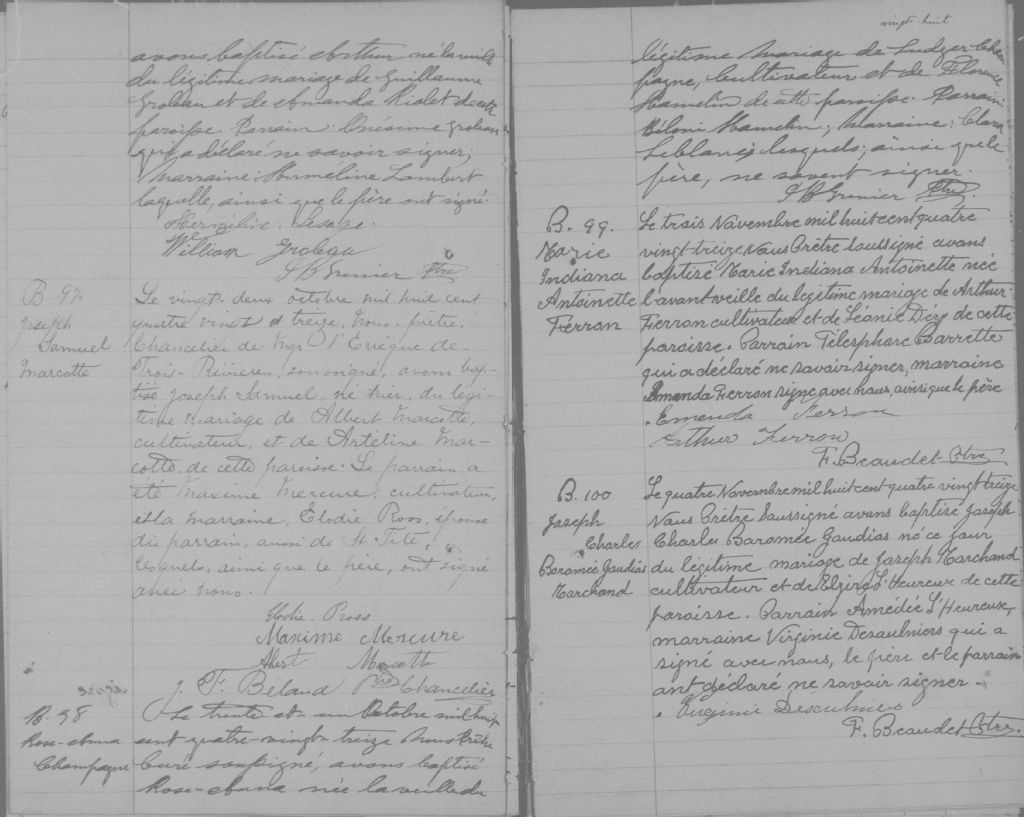 avons baptisé Arthur né la veille
du légitime mariage de Guillaume
Groleau et de Amanda Riolet de cette
paroisse. Parrain: Onésime Groleau
qui a déclaré ne savoir signer;
Marraine: Herméline Lambert
laquelle, ainsi que le père ont signé.
William Groleau
J B Grenier Ptre
B. 97.
Joseph
Samuel
Marcotte
Le vingt deux octobre mil huit cent
quatre vingt et treize, nous, prêtre,
Chancelier de Mgr l'Evêque de
Trois-Rivières, soussigné, avons bap-
tisé Joseph Samuel, né hier, du légi-
time mariage de Albert Marcotte,
cultivateur, et de Arteline Mar-
cotte, de cette paroisse. Le parrain a
été Maxime Mercure, cultivateur,
et la marraine, Elodie Ross, épouse
du parrain, aussi de St Tite,
lesquels, ainsi que le père, ont signé
avec nous.
Elodie Ross
Maxime Mercure
Albert Marcotte
J. F. Béland Ptre Chancelier
B. 98
Rose-Anna
Champagne
Le trente et un Octobre mil huit
cent quatre-vingt-treize Nous Prêtre
Curé soussigné, avons baptisé
Rose-Anna née la veille du
vingt-huit
légitime mariage de Ludger Cham
pagne, Cultivateur et de Florence
Hamelin de cette paroisse. Parrain:
Béloni Hamelin; Marraine: Clara
Leblanc; lesquels, ainsi que le
père, ne savent signer.
J B Grenier Ptre
B. 99.
Marie
Indiana
Antoinette
Ferron
Le trois Novembre mil huit cent quatre
vingt treize Nous Prêtre soussigné avons
baptisé Marie Indiana Antoinette née
l'avant veille du légitime mariage de Arthur
Ferron cultivateur et de Léonie Déry de cette
paroisse. Parrain Télesphore Barrette
qui a déclaré ne savoir signer, marraine
Amanda Ferron signe avec nous, ainsi que le père
Emenda Ferron
Arthur Ferron
F. Beaudet Ptre
B. 100
Joseph
Charles
Boromée Gaudias
Marchand
Le quatre Novembre mil huit cent quatre vingt treize
Nous Prêtre Soussigné avons baptisé Joseph
Charles Baromée Gaudias né ce jour
du légitime mariage de Joseph Marchand
cultivateur et de Elzire L'Heureux de cette
paroisse. Parrain Amédée L'Heureux,
marraine Virginie Desaulniers qui a
signé avec nous, le père et le parrain
ont déclaré ne savoir signer.
F. Beaudet Ptre.